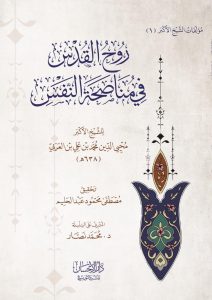 مؤلفات الشيخ الأكبر (٦)
روح القدس
في مناصحة النفس
للشيخ الأكبر
محيي الدين محمد بن علي بن العربي
(٦٣٨هـ)
تحقيق
مصطفى محمود عبد الحليم
د. محمد نصار
دار الإحسان